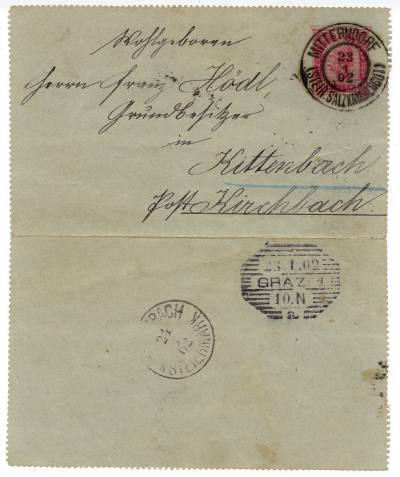 Wohlgeboren
Herrn Franz Hödl,
Grundbesitzer
in
Kittenbach
Post Kirchbach.
MITTERNDORF
23
1
02
(STEIR. SALZKAMMERGUT)
23.1.02
GRAZ 1
10.N
a
BACH
24
02
STEIERMARK